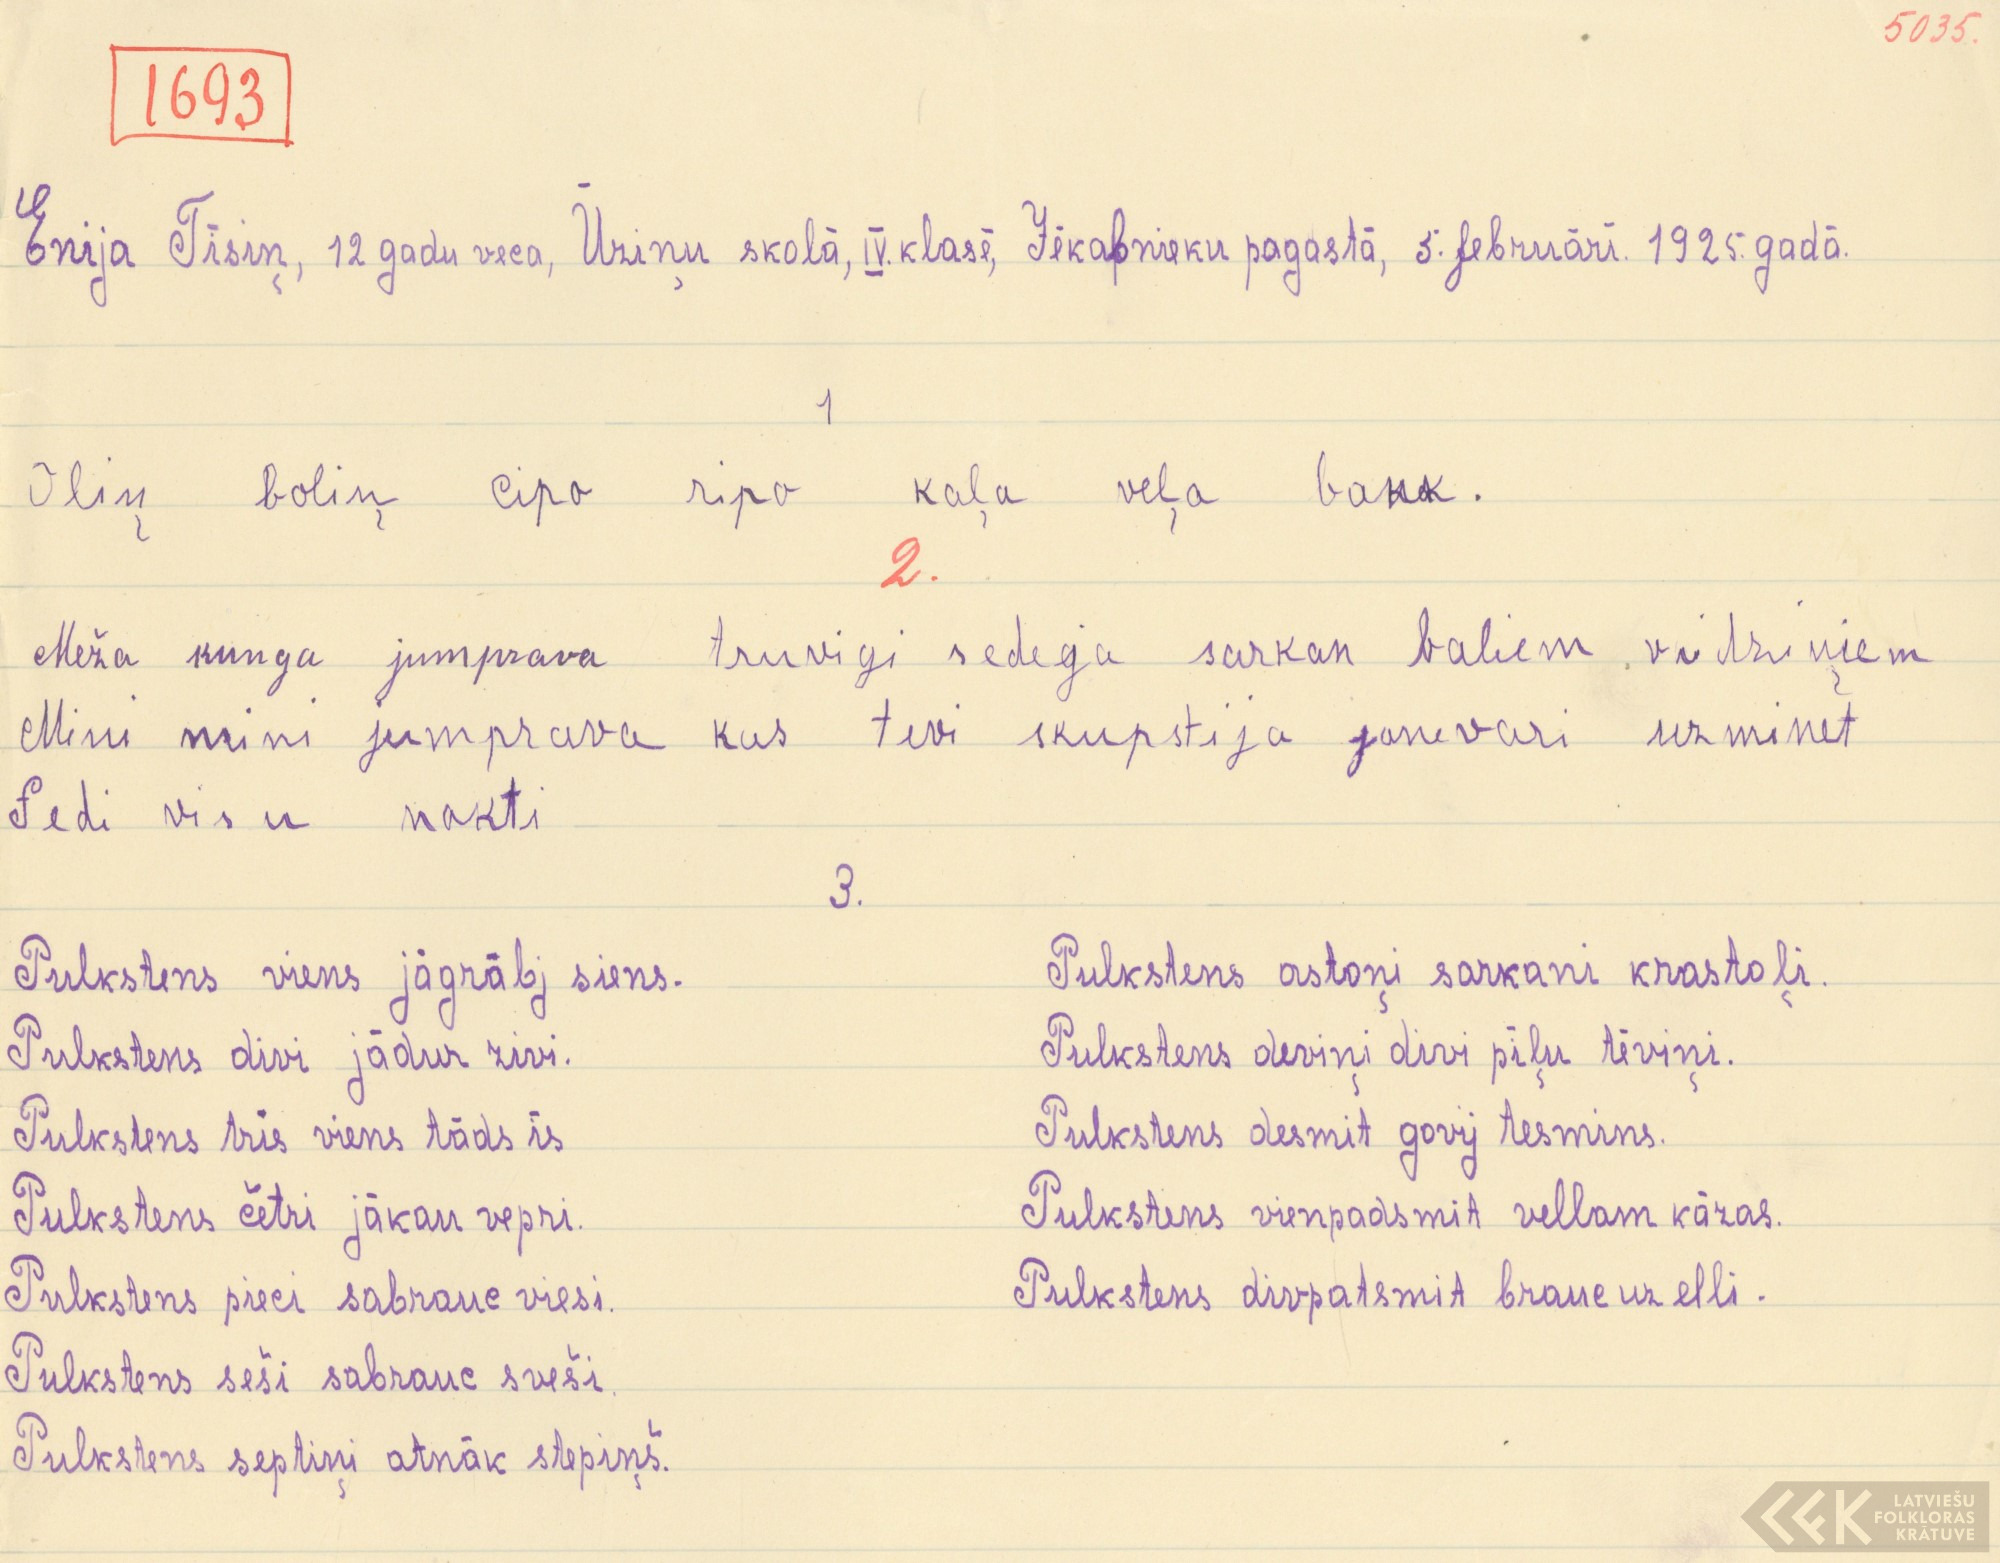 5035.
1693
Enija Tīsiņ, 12 gadu veca, Ūziņu skolā, IV. klasē, Jēkabnieku pagastā, 5. februārī. 1925. gadā.
1
Iliņ boliņ cipo ripo kaļa veļa bakk.
2.
Meža kunga jumprava truvigi sedeja sarkan baliem vidziņiem
Mini mini jumprava kas tevi skupstija janevari uzminet
Sedi visu nakti
3.
Pulkstens viens jāgrābj siens.
Pulkstens divi jādur zivi.
Pulkstens trīs viens tāds īs
Pulkstens četri jākau vepri.
Pulkstens pieci sabrauc viesi.
Pulkstens seši sabrauc sveši.
Pulkstens septiņi atnāk stepiņš.
Pulkstens astoņi sarkani krastoļi.
Pulkstens deviņi divi pīļu tēviņi.
Pulkstens desmit govij tesmins.
Pulkstens vienpadsmit vellam kāzas.
Pulkstens divpatsmit brauc uz elli.
LATVIEŠU
FOLKLORAS
KRĀTUVE